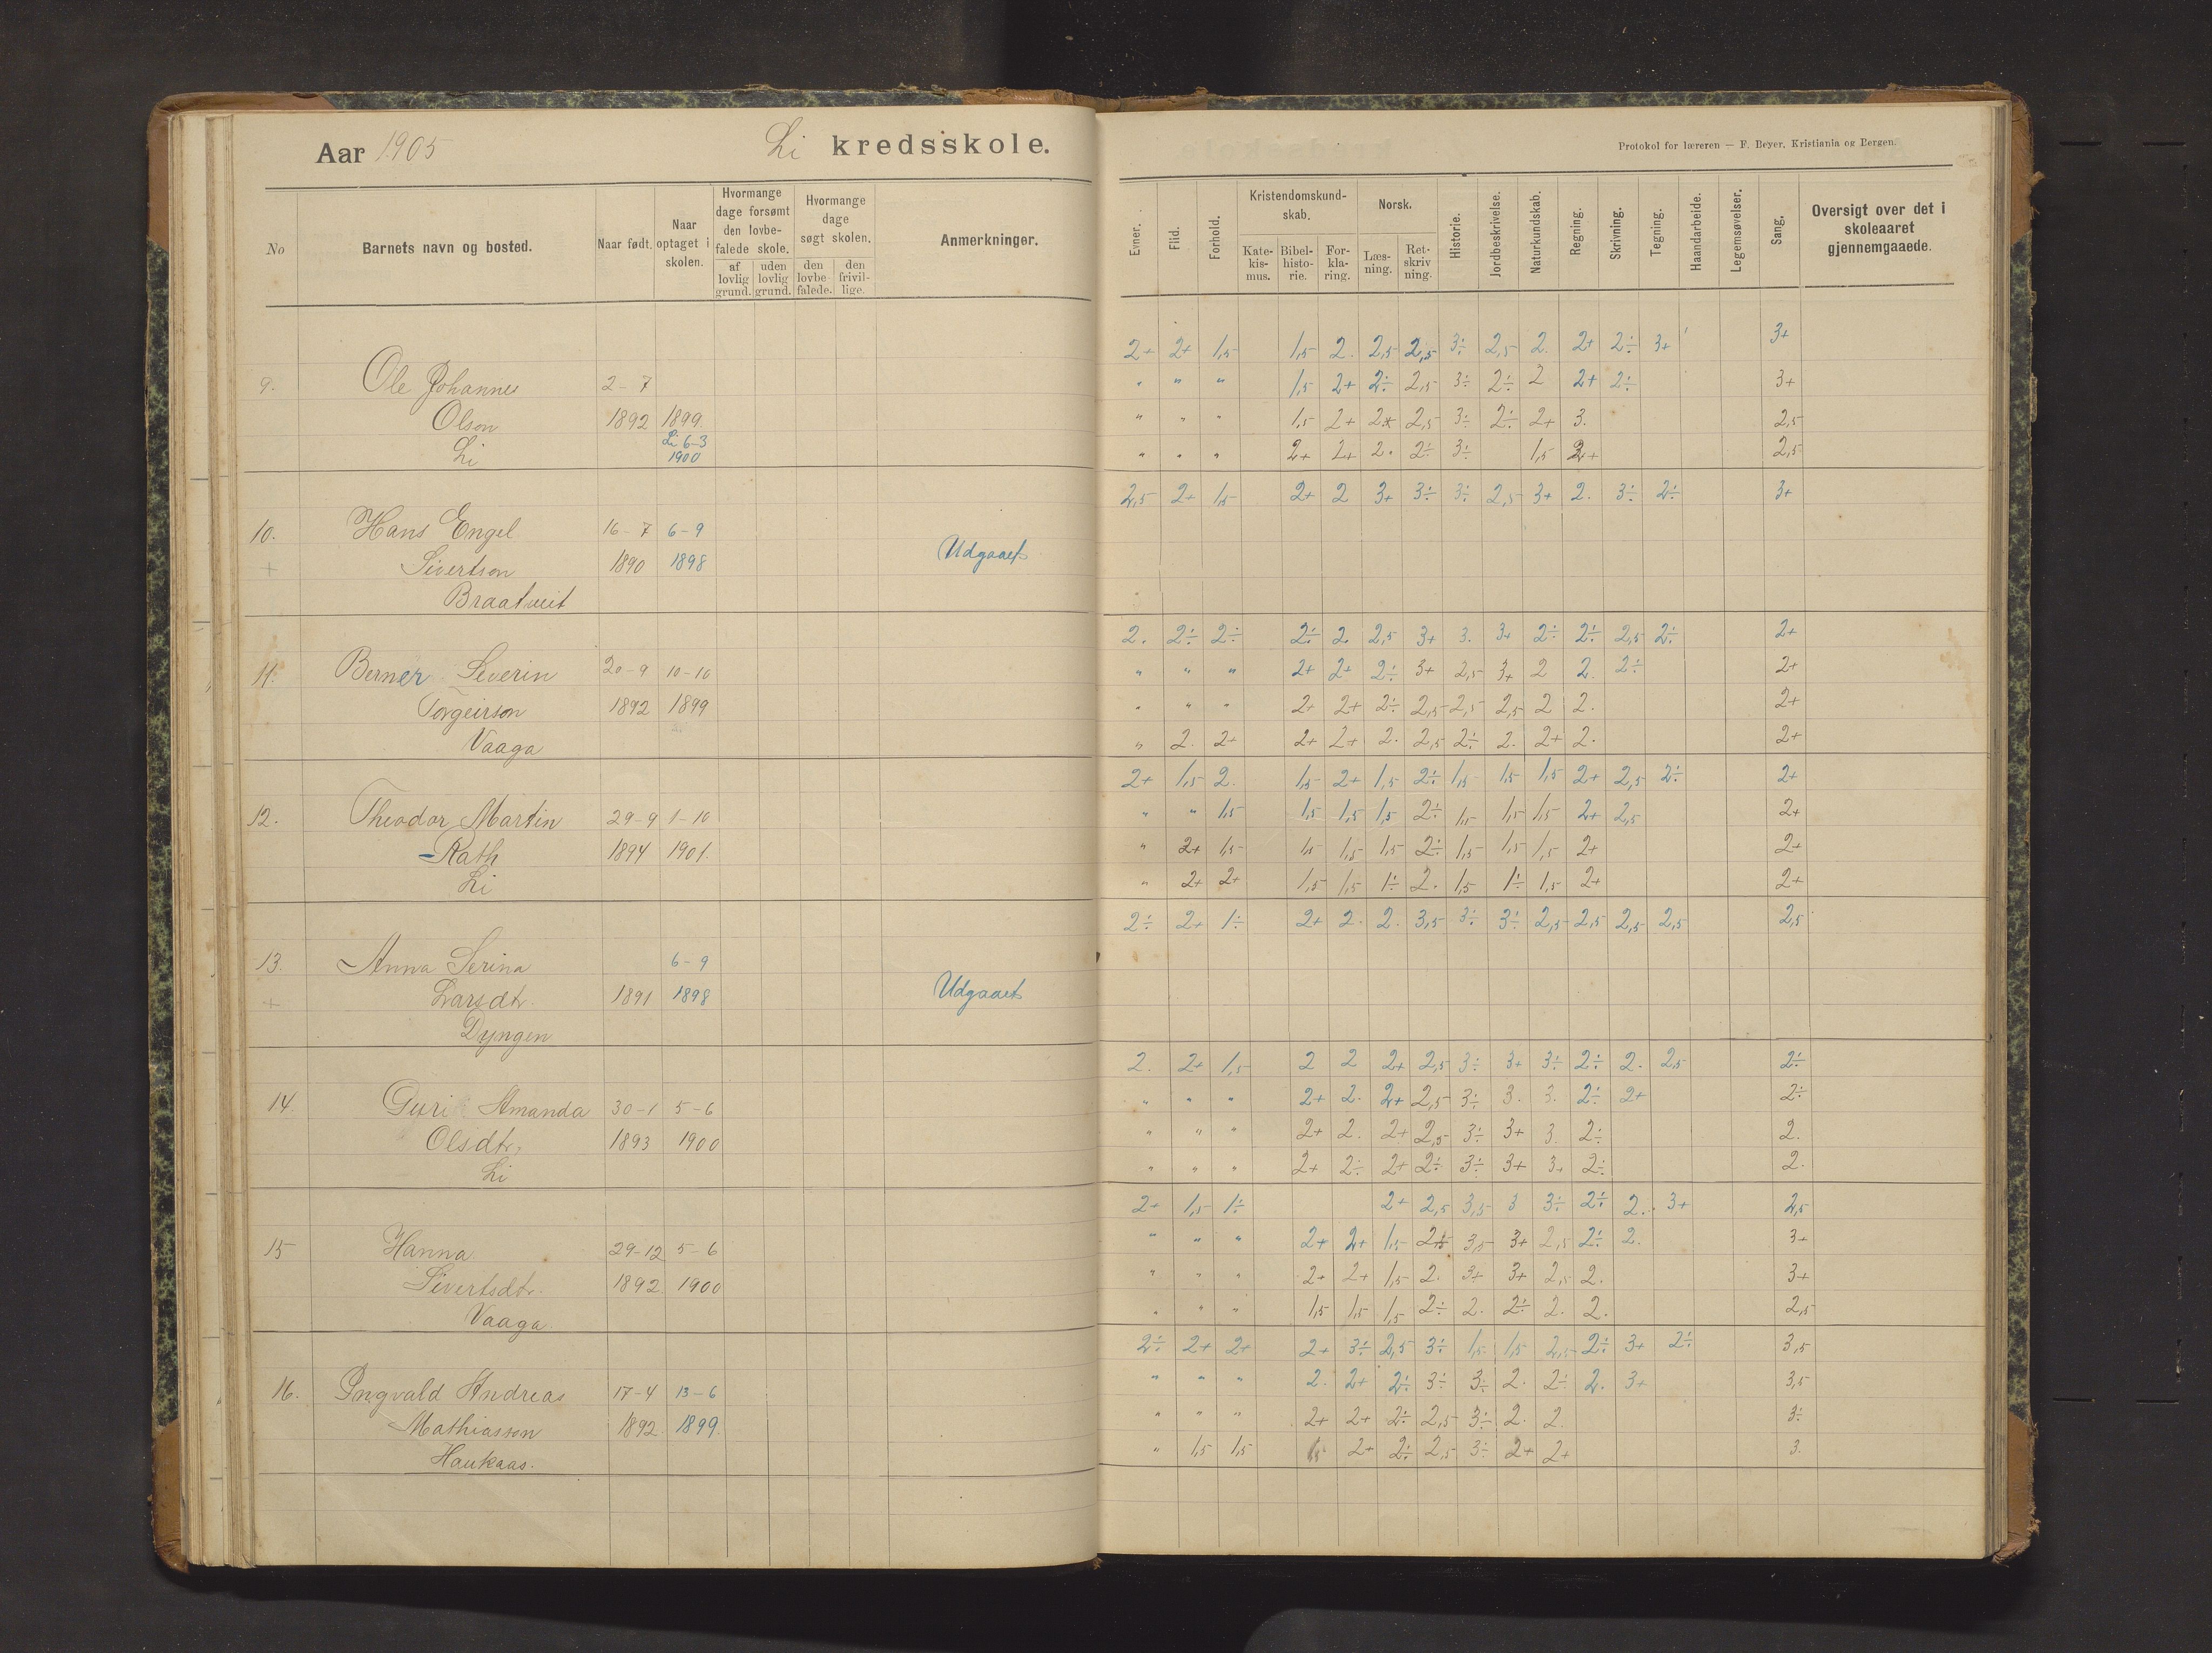 Aar 1905 Li kredsskole.
Protokol for læreren — F. Beyer, Kristiania og Bergen.
No
Barnets navn og bosted.
Naar født.
Naar optaget i skolen.
Hvormange dage forsømt den lovbefalede skole.
af lovlig grund.
uden lovlig grund.
Hvormange dage søgt skolen.
den lovbefalede.
den frivillige.
Anmerkninger.
Evner.
Flid.
Forhold.
Kristendomskundskab.
Katekismus.
Bibelhistorie.
Forklaring.
Norsk.
Læsning.
Retskrivning.
Historie.
Jordbeskrivelse.
Naturkundskab.
Regning.
Skrivning.
Tegning.
Haandarbeide.
Legemsøvelser.
Sang.
Oversigt over det i skoleaaret gjennemgaaede.
2+ 2+ 1,5 1,5 2. 2,5 2,5 3÷ 2,5 2. 2+ 2÷ 3+ 3+
9. Ole Johannes 2-7 " " " 1,5 2+ 2÷ 2,5 3÷ 2÷ 2 2+ 2÷ 3+
Olson 1892 1899. " " " 1,5 2+ 2+ 2,5 3÷ 2÷ 2+ 3. 2,5
Li Li 6-3 1900 " " " 2+ 2+ 2. 2÷ 3÷ 1,5 2+ 2,5
2,5 2+ 1,5 2+ 2 3+ 3÷ 3÷ 2,5 3+ 2. 3÷ 2÷ 3+
10. Hans Engel 16-7 6-9
+ Sivertson 1890 1898 Udgaaet
Braatveit
2. 2÷ 2÷ 2÷ 2. 2,5 3+ 3. 3+ 2÷ 2÷ 2,5 2÷ 2+
11. Berner Severin 20-9 10-10 " " " 2+ 2+ 2÷ 3+ 2,5 3+ 2 2. 2÷ 2+
Torgeirson 1892 1899 " " " 2+ 2+ 2÷ 2,5 2,5 2,5 2 2. 2+
Vaaga " 2. 2+ 2+ 2+ 2. 2,5 2÷ 2. 2+ 2. 2+
2+ 1,5 2. 1,5 2+ 1,5 2÷ 1,5 1,5 1,5 2+ 2,5 2÷ 2+
12. Theodor Martin 29-9 1-10 " " 1,5 1,5 1,5 1,5 2÷ 1,5 1,5 1,5 2+ 2,5 2+
Rath 1894 1901. " 2+ 1,5 1,5 1,5 1,5 2÷ 1,5 1,5 1,5 2+ 2+
Li " 2+ 2+ 1,5 1,5 1÷ 2. 1,5 1÷ 1,5 2+ 2+
2÷ 2+ 1÷ 2+ 2. 2. 3,5 3÷ 3÷ 2,5 2,5 2,5 2,5 2,5
13. Anna Serina 6-9
+ Larsdtr. 1891 1898 Udgaaet
Dyngen
2. 2+ 1,5 2 2 2+ 2,5 3÷ 3+ 3÷ 2÷ 2. 2,5 2÷
14. Guri Amanda 30-1 5-6 " " " 2+ 2. 2+ 2,5 3÷ 3. 3. 2÷ 2+ 2÷
Olsdtr. 1893 1900 " " " 2+ 2. 2+ 2,5 3÷ 3+ 3. 2÷ 2.
Li " " " 2+ 2÷ 2+ 2÷ 3÷ 3+ 3+ 2÷ 2.
2+ 1,5 1÷ 2+ 2,5 3,5 3 3÷ 2÷ 2. 3+ 2,5
15 Hanna 29-12 5-6 " " " 2+ 2+ 1,5 2,5 3,5 3+ 2,5 2÷ 2. 3+
Sivertsdtr. 1892. 1900 " " " 2+ 2+ 1,5 2. 3+ 3+ 2,5 2. 3+
Vaaga. " " " 1,5 1,5 1,5 2÷ 2. 2÷ 2. 2. 2,5
2÷ 2+ 2+ 2+ 3÷ 2,5 3÷ 1,5 1,5 2,5 2÷ 3+ 2÷ 3,5
16. Ingvald Andreas 17-4 13-6 " " " 2. 2+ 2÷ 3÷ 3÷ 2. 2÷ 2. 3+ 3,5
Mathiasson 1892. 1899. " " " 2+ 2+ 2÷ 2,5 3÷ 2. 2. 3÷
Haukaas. " 1,5 1,5 1,5 2+ 2÷ 2,5 3÷ 2+ 2+ 3.